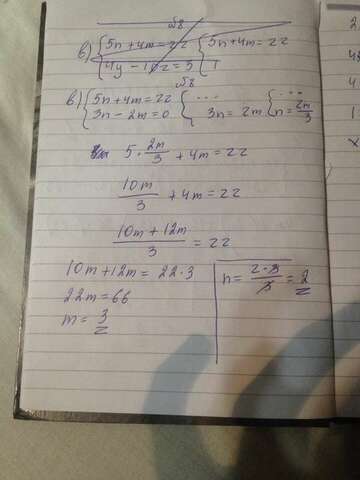 №8
в) {5n + 4m = 22 {5n + 4m = 22
{4y - 10z = 5 {
№8
в) {5n + 4m = 22 {... {...
{3n - 2m = 0 {3n = 2m {n = 2m/3
5 · 2m/3 + 4m = 22
10m/3 + 4m = 22
(10m + 12m)/3 = 22
10m + 12m = 22 · 3
22m = 66
m = 3
n = (2 · 3)/3 = 2